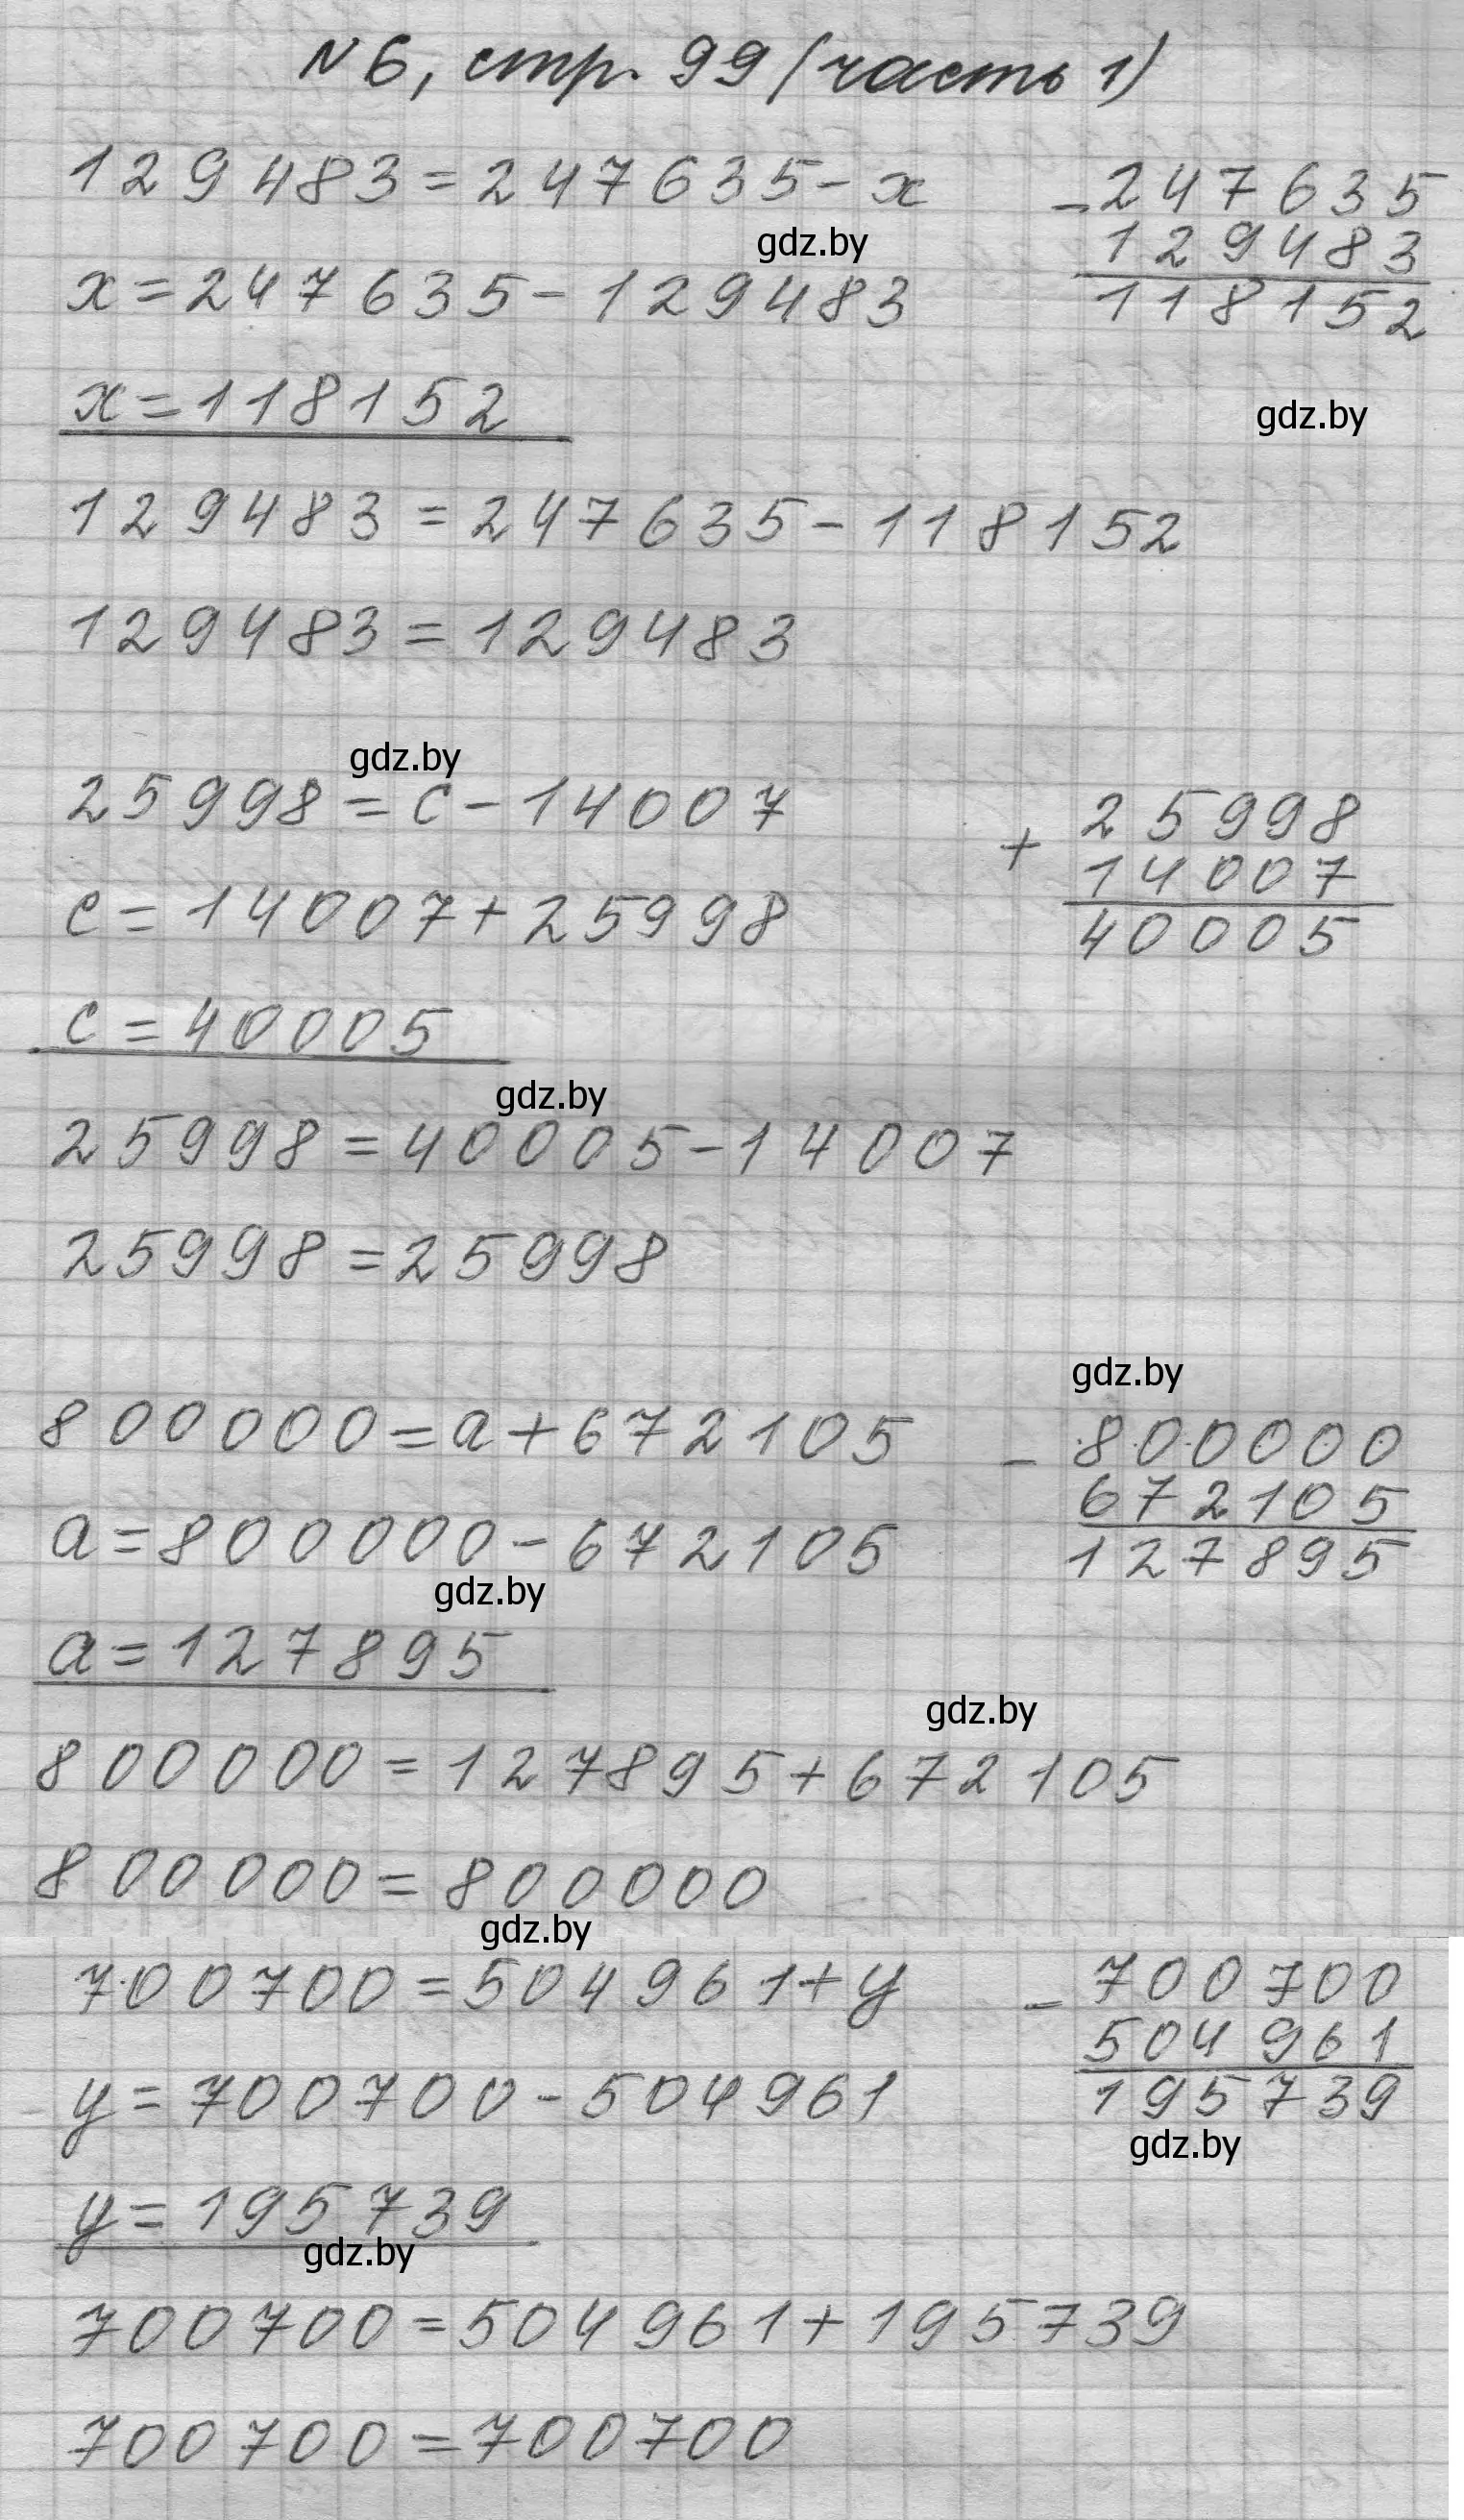 №6, стр. 99 (часть 1)
129483=247635-x
-247635
129483
118152
gdz.by
x=247635-129483
x=118152
gdz.by
129483=247635-118152
129483=129483
gdz.by
25998=c-14007
+25998
14007
40005
c=14007+25998
c=40005
gdz.by
25998=40005-14007
25998=25998
gdz.by
800000=a+672105
-800000
672105
127895
a=800000-672105
gdz.by
a=127895
gdz.by
800000=127895+672105
800000=800000
gdz.by
700700=504961+y
-700700
504961
195739
y=700700-504961
gdz.by
y=195739
gdz.by
700700=504961+195739
700700=700700